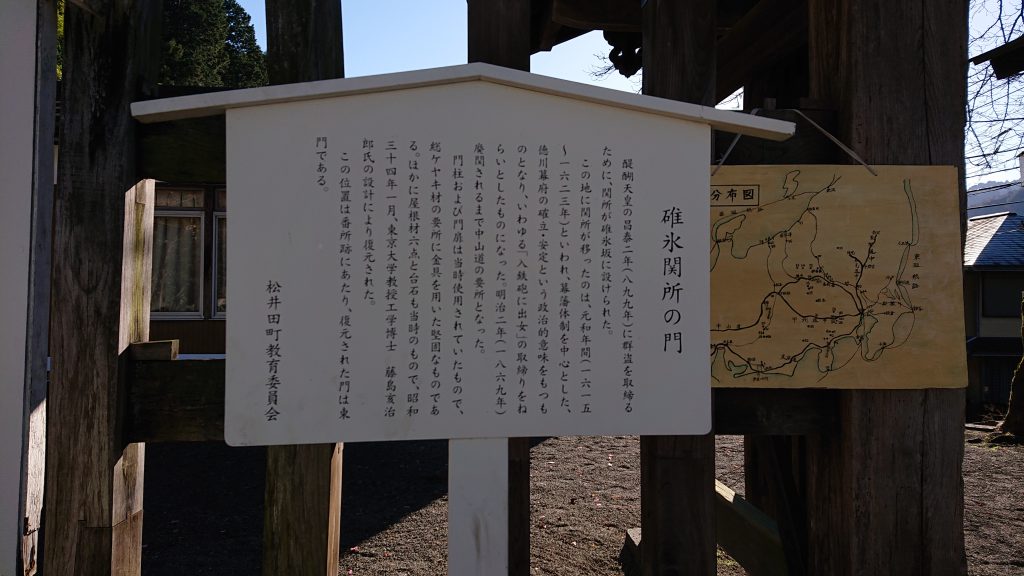 碓氷関所の門
醍醐天皇の昌泰二年(八九九年)に群盗を取締る
ために、関所が碓氷坂に設けられた。
この地に関所が移ったのは、元和年間(一六一五
〜一六二三年)といわれ、幕藩体制を中心とした、
徳川幕府の確立・安定という政治的意味をもつも
のとなり、いわゆる「入鉄砲に出女」の取締りをね
らいとしたものになった。明治二年(一八六九年)
廃関されるまで中山道の要所となった。
門柱および門扉は当時使用されていたもので、
総ケヤキ材の要所に金具を用いた堅固なものであ
る。ほかに屋根材六点と台石も当時のもので、昭和
三十四年一月、東京大学教授工学博士 藤島亥治
郎氏の設計により復元された。
この位置は番所跡にあたり、復元された門は東
門である。
松井田町教育委員会
分布図